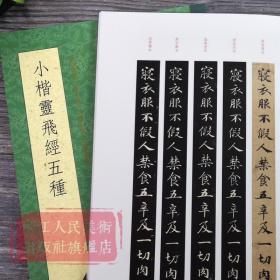 小楷靈飛經五種
寢衣服不假人禁食五辛及一切肉
寢衣服不假人禁食五辛及一切肉
寢衣服不假人禁食五辛及一切肉
寢衣服不假人禁食五辛及一切肉
寢衣服不假人禁食五辛及一切肉
江人民美術
版社旗艦店